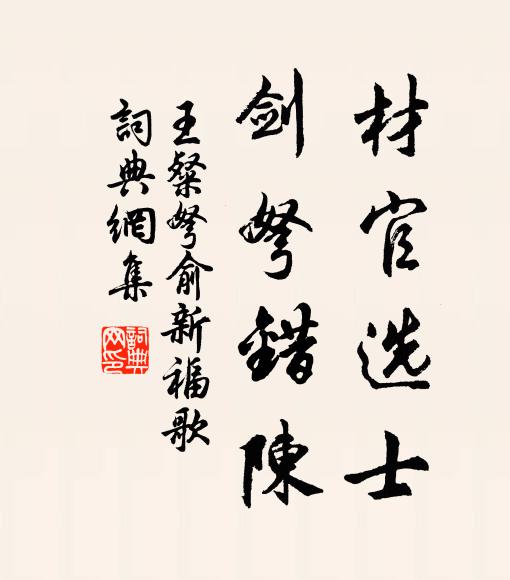 材官选士
剑弩錯陳
王粲弩俞新福歌
詞典網集
詞典网印